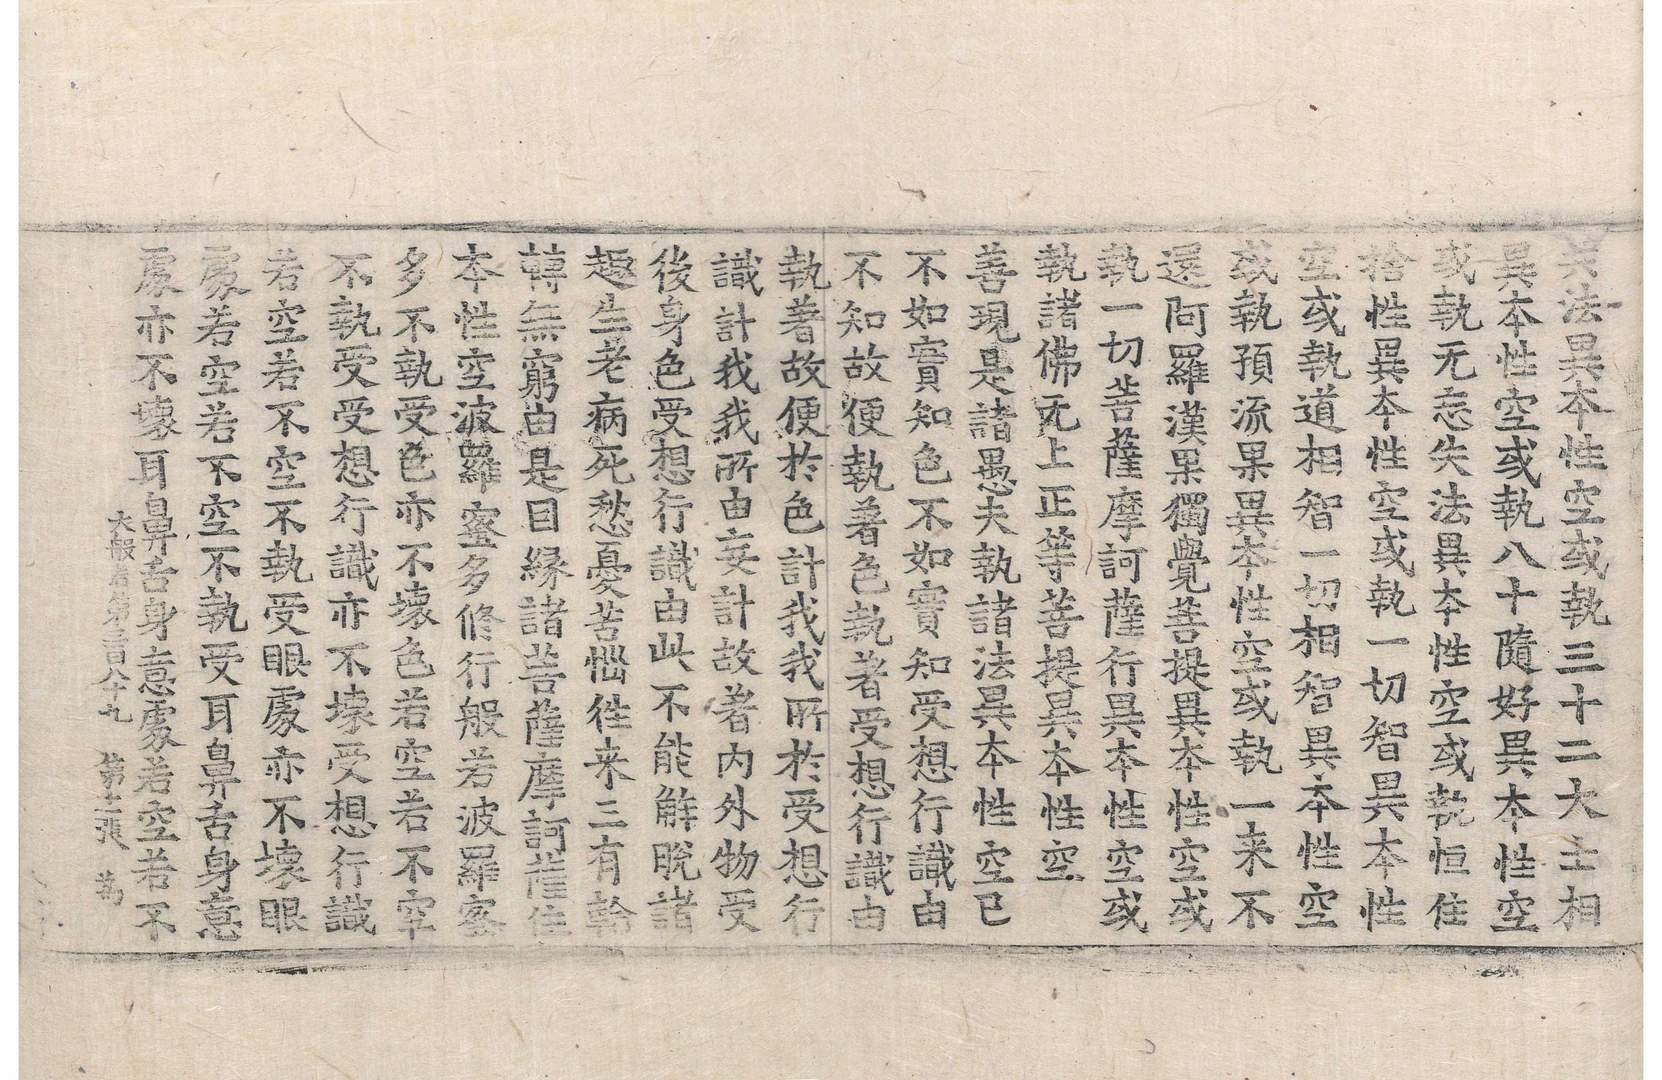 共法異本性空或執三十二大士相
異本性空或執八十隨好異本性空
或執无忘失法異本性空或執恒住
捨性異本性空或執一切智異本性
空或執道相智一切相智異本性空
或執預流果異本性空或執一来不
還阿羅漢果獨覺菩提異本性空或
執一切菩薩摩訶薩行異本性空或
執諸佛无上正等菩提異本性空
善現是諸愚夫執諸法異本性空已
不如實知色不如實知受想行識由
不知故便執著色執著受想行識由
執著故便於色計我我所於受想行
識計我我所由妄計故著內外物受
後身色受想行識由此不能解脫諸
趣生老病死愁憂苦惱徃来三有輪
轉無窮由是因緣諸菩薩摩訶薩住
本性空波羅蜜多修行般若波羅蜜
多不執受色亦不壞色若空若不空
不執受受想行識亦不壞受想行識
若空若不空不執受眼處亦不壞眼
處若空若不空不執受耳鼻舌身意
處亦不壞耳鼻舌身意處若空若不
大般若第三百八十九 第 張